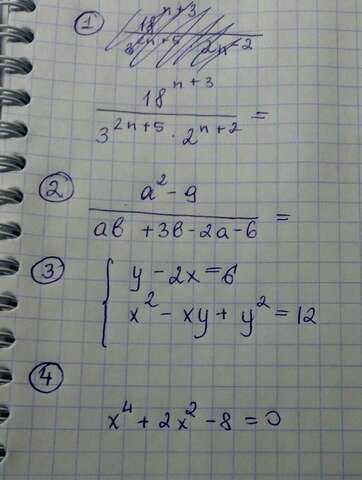 ① 18^(n+3)
3^(2n+5) 2^(n-2)
18^(n+3)
3^(2n+5) · 2^(n+2) =
② a² - 9
ab + 3b - 2a - 6 =
③ { y - 2x = 6
x² - xy + y² = 12
④
x⁴ + 2x² - 8 = 0